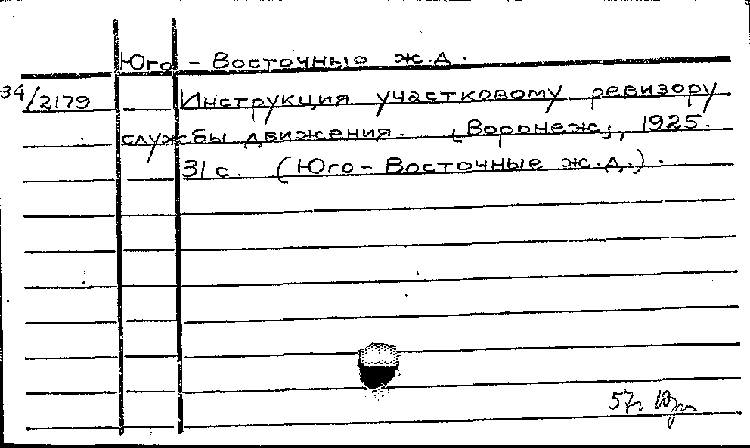 Юго - Восточные ж.д.
34/2179 Инструкция участковому ревизору
службы движения. [Воронеж], 1925.
31 с. (Юго-Восточные ж.д.).
57г